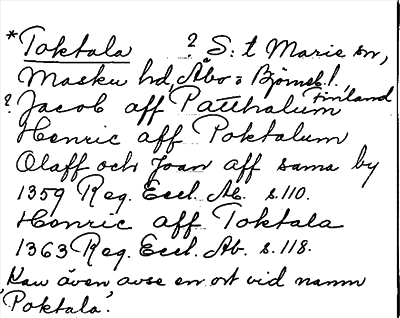 *Toktala ? S:t Marie sn,
Masku hd, Åbo = Björneb. l., Finland
? Jacob aff Patthalum
Henric aff Poktalum
Olaff och Joan aff sama by
1359 Reg. Eccl. Ab. s. 110.
Henric aff Toktala
1363 Reg. Eccl. Ab. s. 118.
Kan även avse en ort vid namn
'Poktala'.